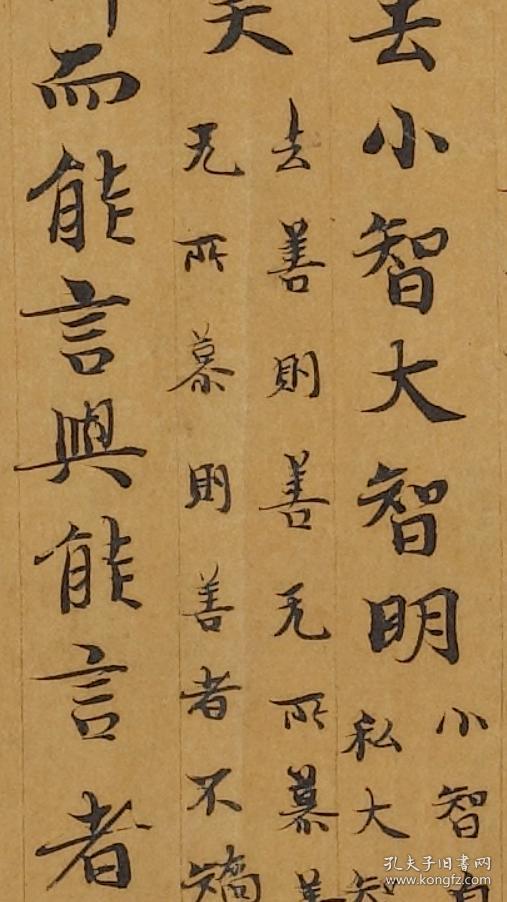 去小智大智明
小智
私大智
矣
去善則善无所慕善
无所慕則善者不矯
而能言與能言者
孔夫子旧书网
www.kongfz.com